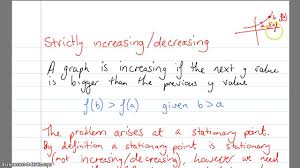 Strictly ncreasing/decreasing
A graph is increasing if the next y value
is bigger than the previous y value
f(b) > f(a) given b>a
The problem arises at a stationary point.
By definition a stationary point is stationary
(not increasing/decreasing), however we need